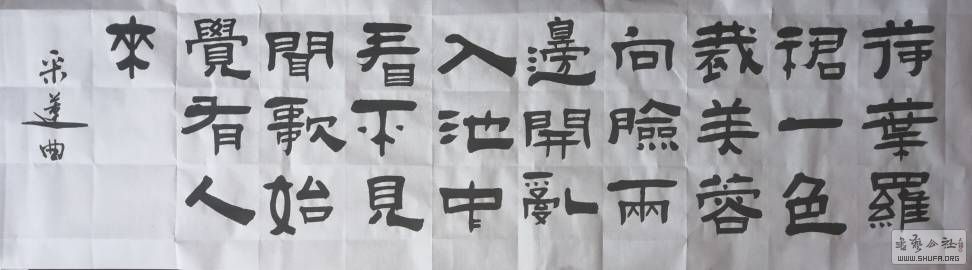 荷葉羅
裙一色
裁美蓉
向臉兩
邊開亂
入池中
看不見
聞歌始
覺有人
來
采蓮曲
WWW.SHUFA.ORG